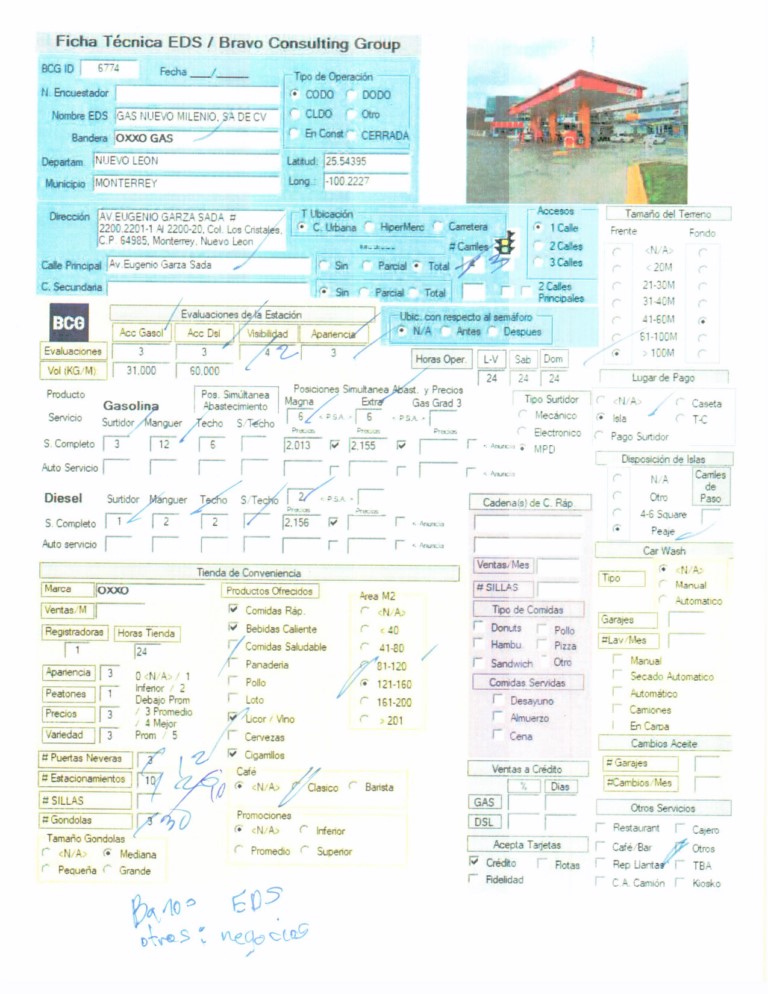 Ficha Técnica EDS / Bravo Consulting Group
BCG ID 6774 Fecha __/__
Tipo de Operación
N. Encuestador CODO DODO
Nombre EDS GAS NUEVO MILENIO, SA DE CV CLDO Otro
Bandera OXXO GAS En Const CERRADA
Departam NUEVO LEON Latitud: 25.54395
Municipio MONTERREY Long.: -100.2227
Dirección AV EUGENIO GARZA SADA #
2200,2201-1 Al 2200-20, Col. Los Cristales,
C.P. 64985, Monterrey, Nuevo Leon
T Ubicación
C. Urbana HiperMerc Carretera
# Carriles
Calle Principal Av.Eugenio Garza Sada Sin Parcial Total 3
C. Secundaria Sin Parcial Total
Accesos
1 Calle
2 Calles
3 Calles
2 Calles
Principales
Tamaño del Terreno
Frente Fondo
<N/A>
< 20M
21-30M
31-40M
41-60M
61-100M
> 100M
BCG
Evaluaciones de la Estación
Acc Gasol Acc Dsl Visibilidad Apariencia
Evaluaciones 3 3 4 2 3
Vol (KG/M): 31.000 60.000
Ubic. con respecto al semáforo
N/A Antes Despues
Horas Oper. L-V Sab Dom
24 24 24
Lugar de Pago
<N/A> Caseta
Isla T-C
Pago Surtidor
Producto
Servicio Gasolina
Pos. Simultanea
Abastecimiento
Posiciones Simultanea Abast. y Precios
Magna Extra Gas Grad 3
6 < P.S.A. > 6 < P.S.A. >
Surtidor Manguer Techo S/Techo Precios Precios Precios
S. Completo 3 12 6 2,013 2,155 < Anuncia
Auto Servicio < Anuncia
Tipo Surtidor
Mecánico
Electronico
MPD
Disposición de Islas
N/A
Otro
4-6 Square
Peaje
Carriles
de
Paso
Diesel Surtidor Manguer Techo S/Techo 2 < P.S.A. >
Precios Precios
S. Completo 1 2 2 2,156 < Anuncia
Auto servicio < Anuncia
Cadena(s) de C. Ráp.
Ventas/Mes
# SILLAS
Tipo de Comidas
Donuts Pollo
Hambu. Pizza
Sandwich Otro
Comidas Servidas
Desayuno
Almuerzo
Cena
Car Wash
Tipo <N/A>
Manual
Automatico
Garajes
#Lav/Mes
Manual
Secado Automatico
Automático
Camiones
En Carpa
Cambios Aceite
# Garajes
#Cambios/Mes
Tienda de Conveniencia
Marca OXXO
Ventas/M
Registradoras Horas Tienda
1 24
Apariencia 3
Peatones 1
Precios 3
Variedad 3
0 <N/A> / 1
Inferior / 2
Debajo Prom
/ 3 Promedio
/ 4 Mejor
Prom / 5
# Puertas Neveras 3 12
# Estacionamientos 10
# SILLAS
# Gondolas 3 30
Tamaño Gondolas
<N/A> Mediana
Pequeña Grande
Productos Ofrecidos
Comidas Ráp.
Bebidas Caliente
Comidas Saludable
Panaderia
Pollo
Loto
Licor / Vino
Cervezas
Cigarrillos
Area M2
<N/A>
< 40
41-80
81-120
121-160
161-200
> 201
Café
<N/A> Clasico Barista
Promociones
<N/A> Inferior
Promedio Superior
Ventas a Crédito
% Dias
GAS
DSL
Acepta Tarjetas
Crédito Flotas
Fidelidad
Otros Servicios
Restaurant Cajero
Café/Bar Otros
Rep Llantas TBA
C.A. Camión Kiosko
Banos EDS
otros: negocios